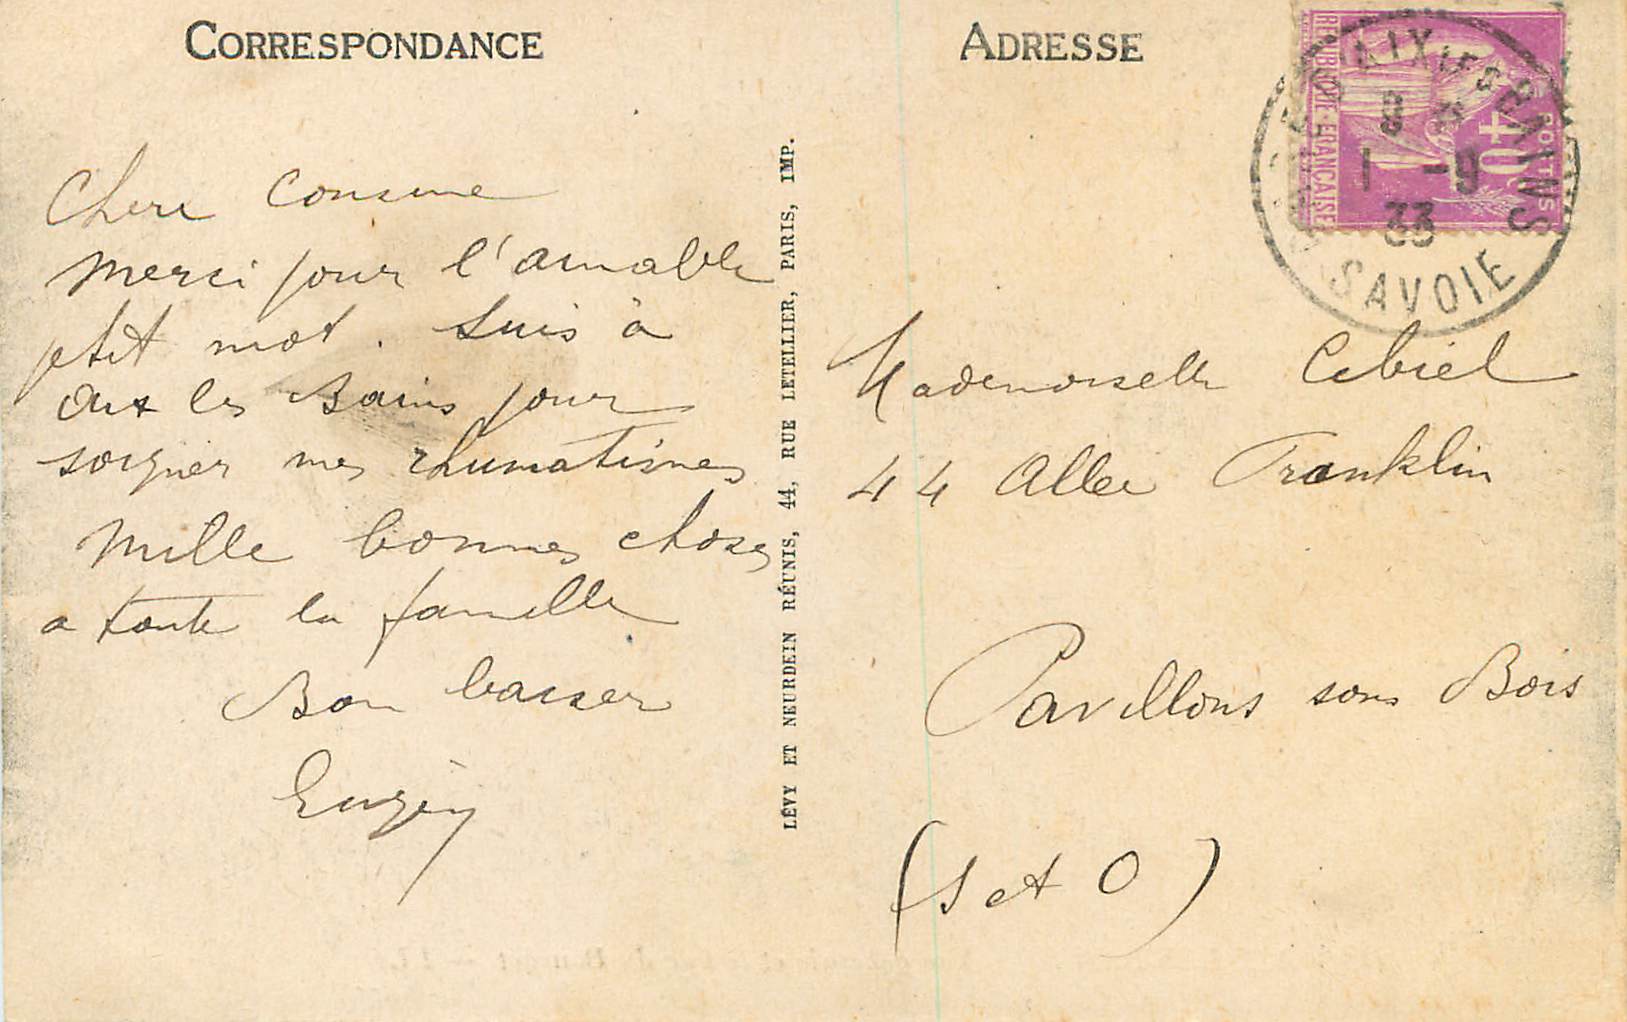 CORRESPONDANCE
Chere Cousine
Merci pour l'aimable
petit mot. Suis à
Aix les Bains pour
soigner mes rhumatismes
Mille bonnes choses
a toute la famille
Bon baiser
LÉVY ET NEURDEIN RÉUNIS, 44, RUE LETELLIER, PARIS, IMP.
ADRESSE
RÉPUBLIQUE-FRANÇAISE
40
POSTES
AIX LES BAINS
8
1 -9
33
SAVOIE
Mademoiselle Cibiel
44 Allee Franklin
Pavillons sous Bois
(S et O)